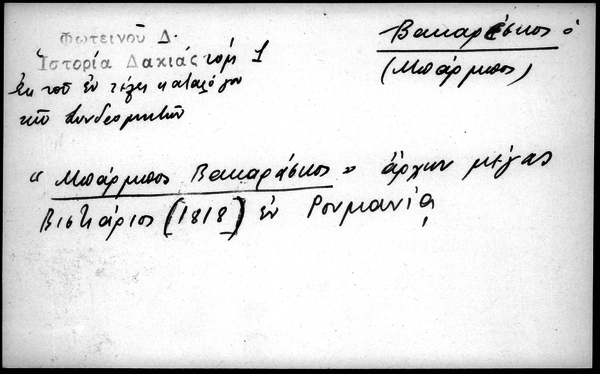 Φωτεινού Δ.
Ἱστορία Δακίας τόμ 1
Ἐκ τοῦ ἐν τέλει καταλόγου
τῶν Συνδρομητῶν
Βακαρέσκος ὁ
(Μπάρμπος)
"Μπάρμπος Βακαρέσκος" ἄρχων μέγας
Βιστιάριος (1818) ἐν Ρουμανίᾳ